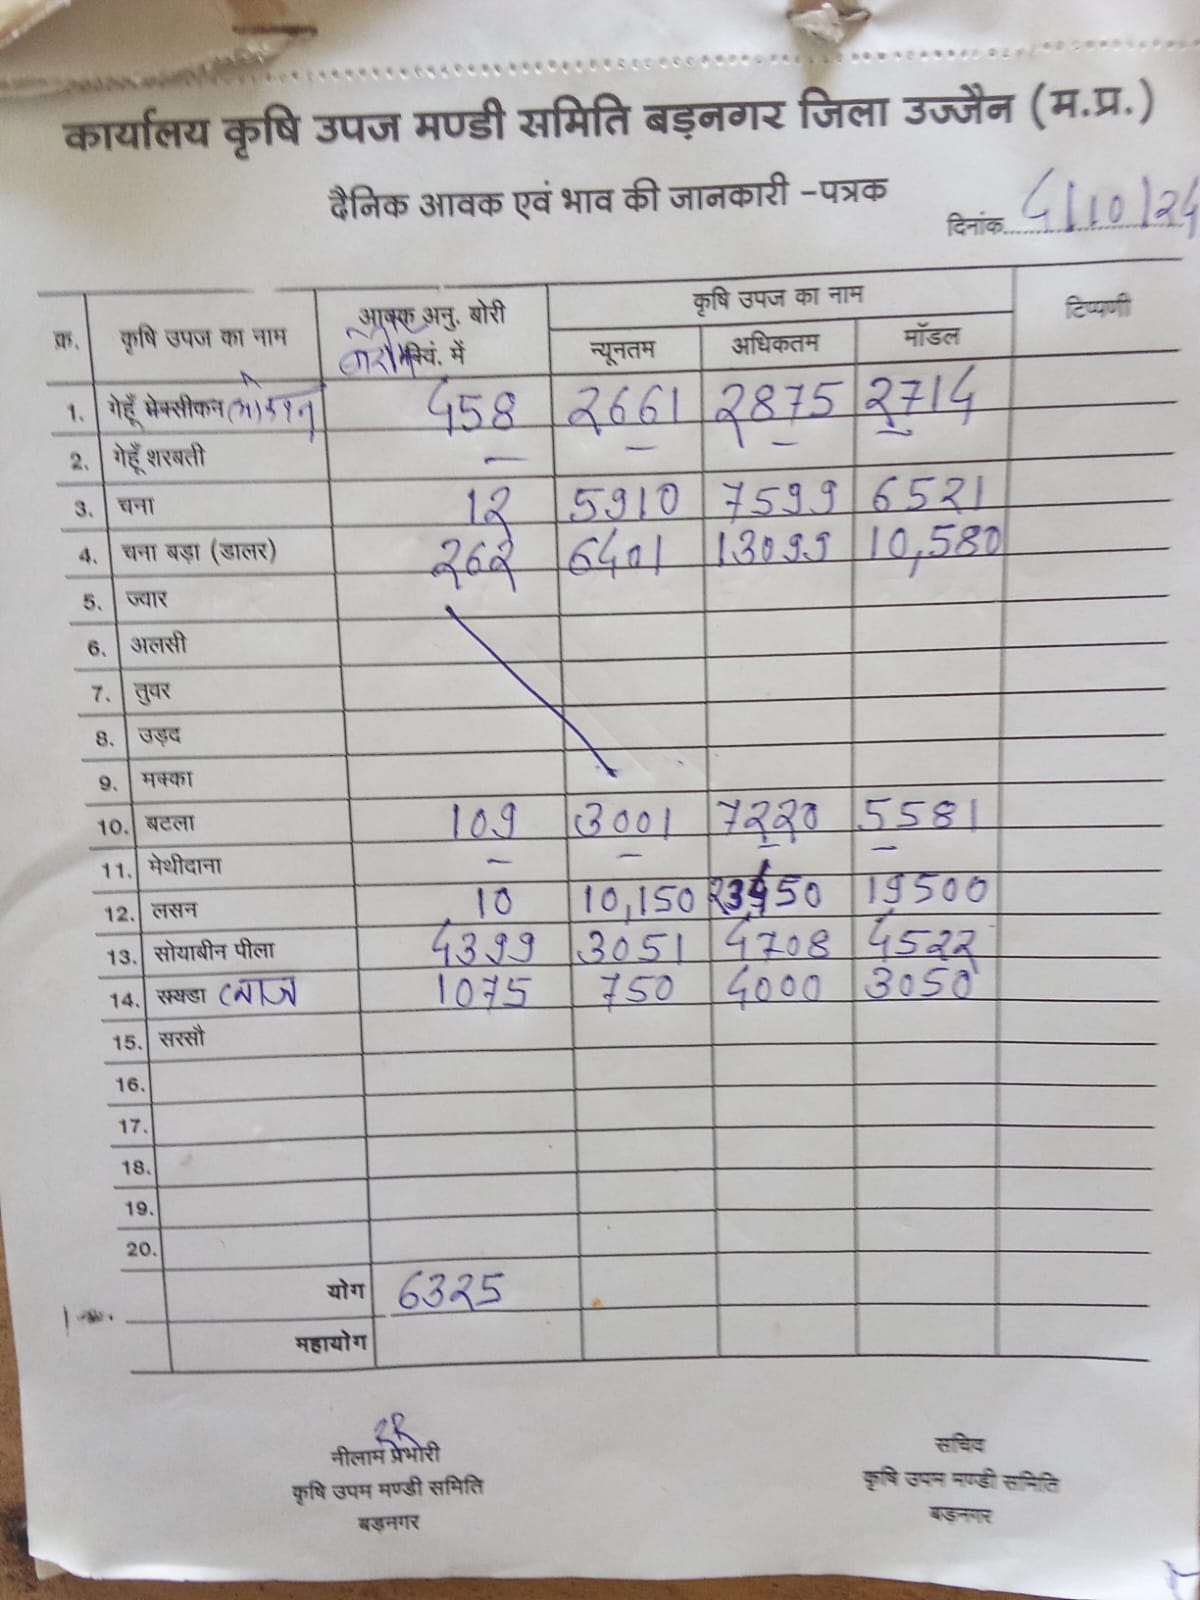 कार्यालय कृषि उपज मण्डी समिति बड़नगर जिला उज्जैन (म.प्र.)
दैनिक आवक एवं भाव की जानकारी -पत्रक
दिनांक 4/10/24
क्र. कृषि उपज का नाम आवक अनु. बोरी क्विं. में कृषि उपज का नाम टिप्पणी
न्यूनतम अधिकतम मॉडल
1. गेहूँ मेक्सीकन 458 2661 2875 2714
2. गेहूँ शरबती — — —
3. चना 12 5910 7599 6521
4. चना बड़ा (डालर) 262 6401 13099 10,580
5. ज्वार
6. अलसी
7. तुवर
8. उड़द
9. मक्का
10. बटला 109 3001 7220 5581
11. मेथीदाना — — — —
12. लसन 10 10,150 19500
13. सोयाबीन पीला 4399 3051 4708 4522
14. 1075 750 4000 3050
15. सरसौ
16.
17.
18.
19.
20.
योग 6325
महायोग
नीलाम प्रेभोरी
कृषि उपम मण्डी समिति
बड़नगर
सचिव
कृषि उपम मण्डी समिति
बड़नगर